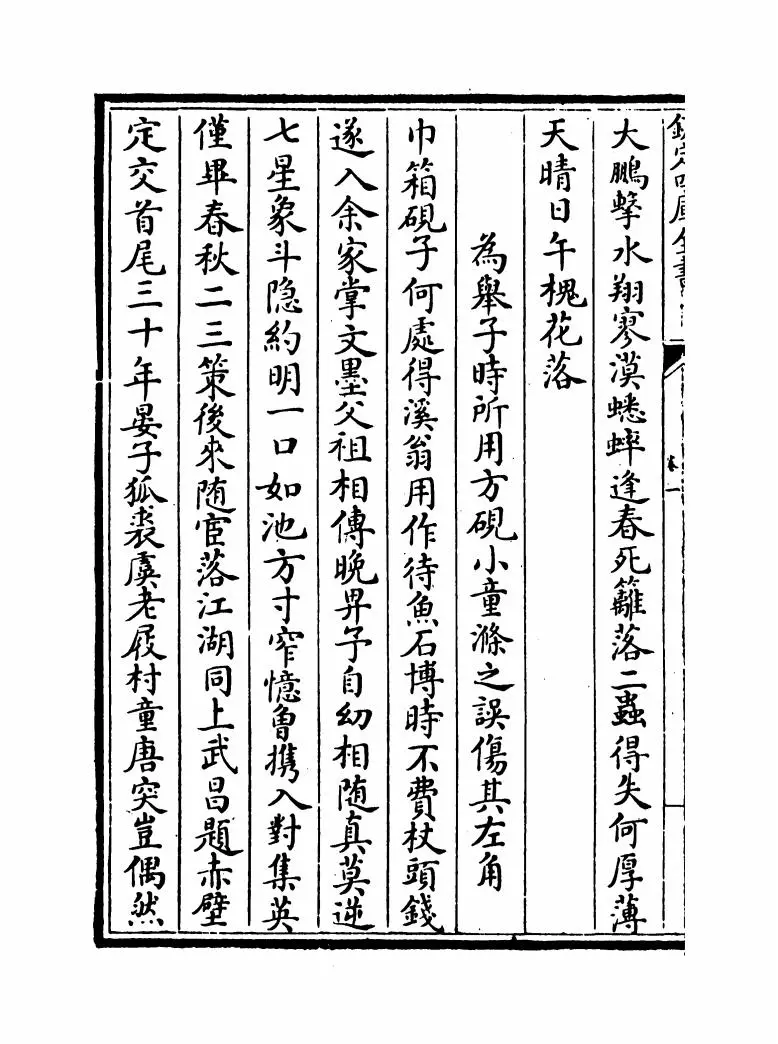 大鵬擊水翔寥漠蟋蟀逢春死籬落二蟲得失何厚薄
天晴日午槐花落
為舉子時所用方硯小童滌之誤傷其左角
巾箱硯子何處得溪翁用作待魚石博時不費杖頭錢
遂入余家掌文墨父祖相傳晚畀予自幼相随真莫逆
七星象斗隐約明一口如池方寸窄憶曾携入對集英
僅畢春秋二三策後來随宦落江湖同上武昌題赤壁
定交首尾三十年晏子狐裘虞老屐村童唐突豈偶然